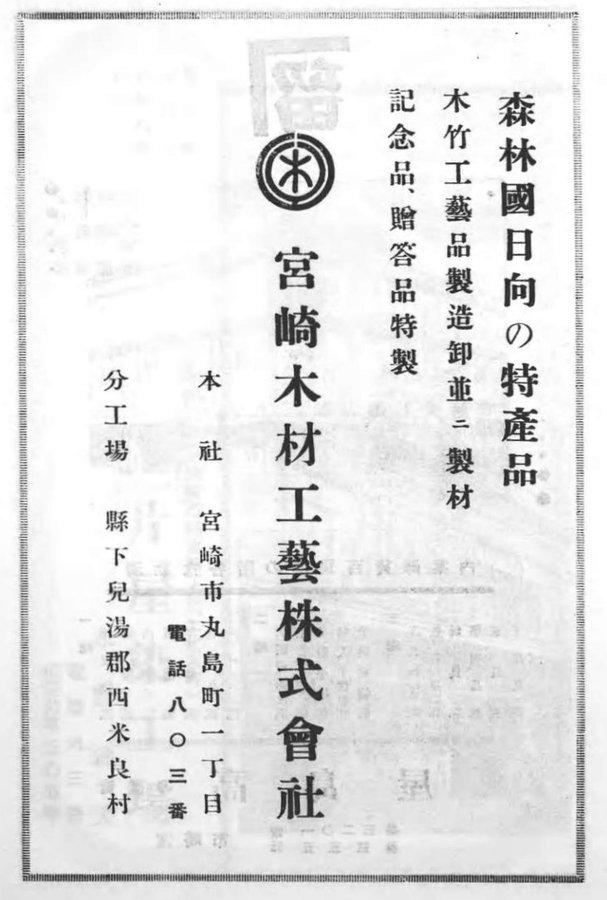 森林國日向の特產品
木竹工藝品製造卸並ニ製材
記念品、贈答品特製
木
宮崎木材工藝株式會社
本社 宮崎市丸島町一丁目
電話八〇三番
分工場 縣下兒湯郡西米良村